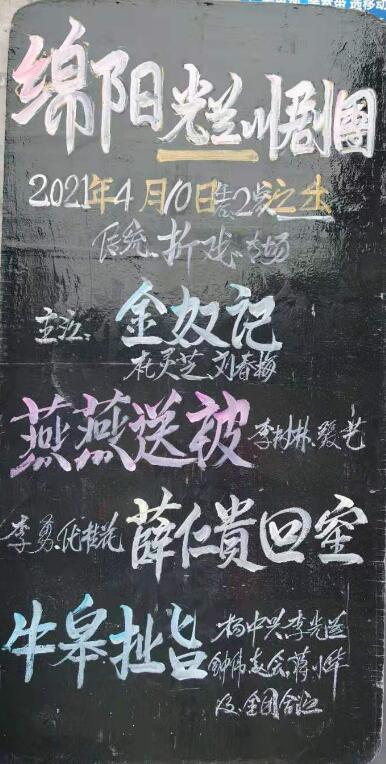 绵阳光兰川剧團
2021年4月10日售2发之生
传统、折戏、专场
主演、金奴记
杜灵芝、刘春梅
燕燕送被 李树林、张艺
李勇、桂花 薛仁贵回窑
牛皋扯旨 杨中兴、李光兰
钟伟、赵会、蒋小华
及、全团合演